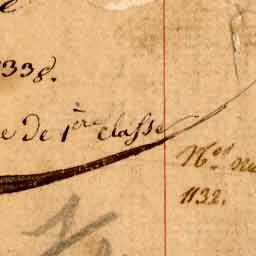 338.
e de 1ère classe
Nos
1132.